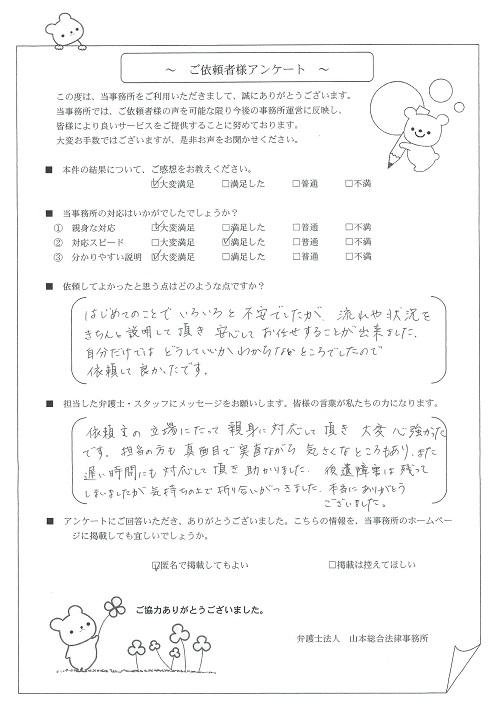 ～ ご依頼者様アンケート ～
この度は、当事務所をご利用いただきまして、誠にありがとうございます。
当事務所では、ご依頼者様の声を可能な限り今後の事務所運営に反映し、
皆様により良いサービスをご提供することに努めております。
大変お手数ではございますが、是非お声をお聞かせください。
■ 本件の結果について、ご感想をお教えください。
☑大変満足 □満足した □普通 □不満
■ 当事務所の対応はいかがでしたでしょうか？
① 親身な対応 ☑大変満足 □満足した □普通 □不満
② 対応スピード □大変満足 ☑満足した □普通 □不満
③ 分かりやすい説明 ☑大変満足 □満足した □普通 □不満
■ 依頼してよかったと思う点はどのような点ですか？
はじめてのことで いろいろと 不安でしたが、流れや状況を
きちんと説明して頂き 安心して お任せすることが出来ました。
自分だけでは どうしていいか わからなかったところでしたので
依頼して良かったです。
■ 担当した弁護士・スタッフにメッセージをお願いします。皆様の言葉が私たちの力になります。
依頼主の立場にたって 親身に対応して頂き 大変 心強かった
です。担当の方も 真面目で実直ながら 気さくなところもあり、また
遅い時間にも 対応して頂き 助かりました。後遺障害は残って
しまいましたが 気持ちの上で折り合いがつきました。本当にありがとう
ございました。
■ アンケートにご回答いただき、ありがとうございました。こちらの情報を、当事務所のホームペー
ジに掲載しても宜しいでしょうか。
☑匿名で掲載してもよい □掲載は控えてほしい
ご協力ありがとうございました。
弁護士法人 山本総合法律事務所